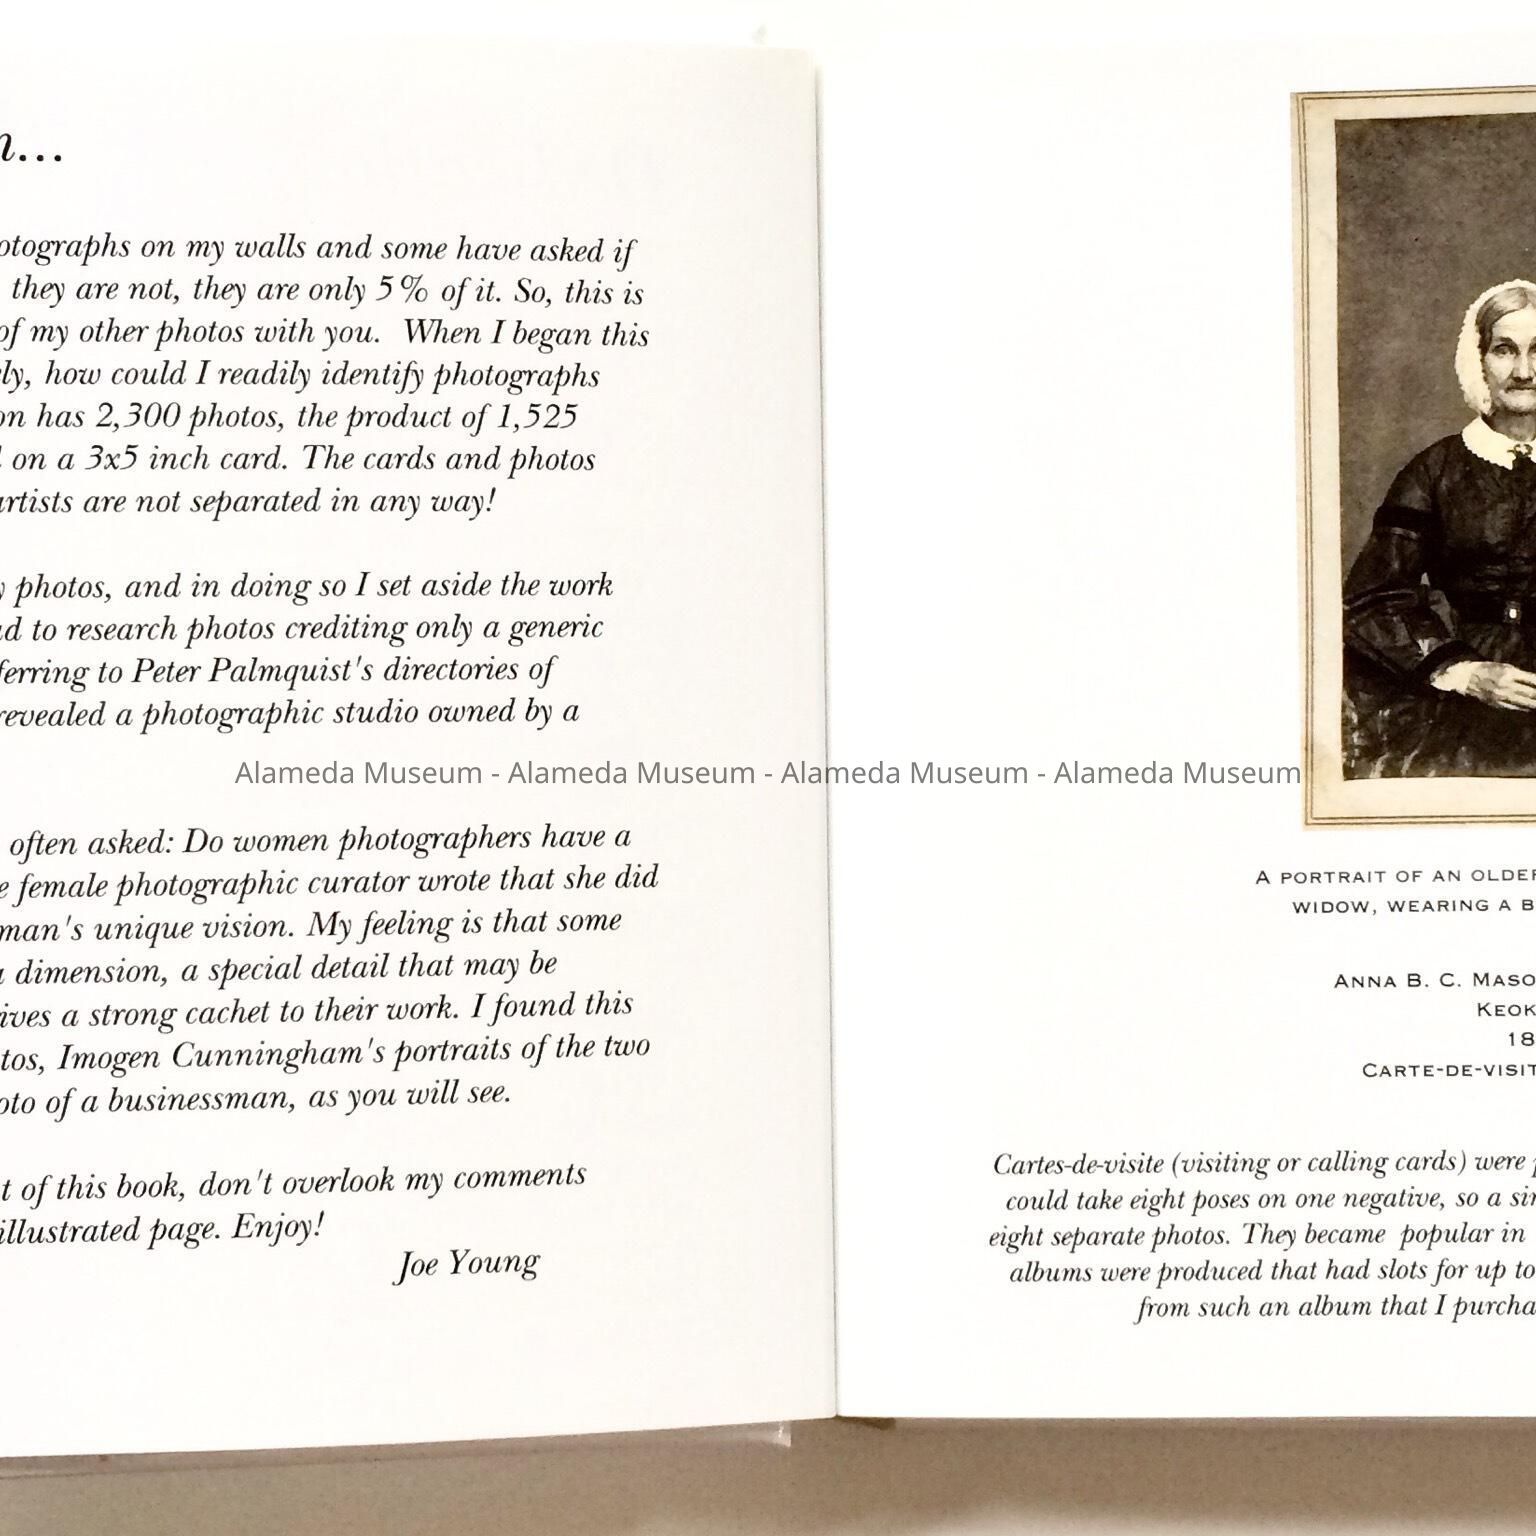 ...
photographs on my walls and some have asked if
they are not, they are only 5% of it. So, this is
of my other photos with you. When I began this
how could I readily identify photographs
has 2,300 photos, the product of 1,525
on a 3x5 inch card. The cards and photos
artists are not separated in any way!
photos, and in doing so I set aside the work
to research photos crediting only a generic
to Peter Palmquist's directories of
revealed a photographic studio owned by a
often asked: Do women photographers have a
female photographic curator wrote that she did
man's unique vision. My feeling is that some
dimension, a special detail that may be
a strong cachet to their work. I found this
Imogen Cunningham's portraits of the two
of a businessman, as you will see.
of this book, don't overlook my comments
illustrated page. Enjoy!
Joe Young
Alameda Museum - Alameda Museum - Alameda Museum - Alameda Museum
A PORTRAIT OF AN OLDER
WIDOW, WEARING A B
ANNA B. C. MASO
KEOK
18
CARTE-DE-VISIT
Cartes-de-visite (visiting or calling cards) were p
could take eight poses on one negative, so a sin
eight separate photos. They became popular in
albums were produced that had slots for up to
from such an album that I purcha